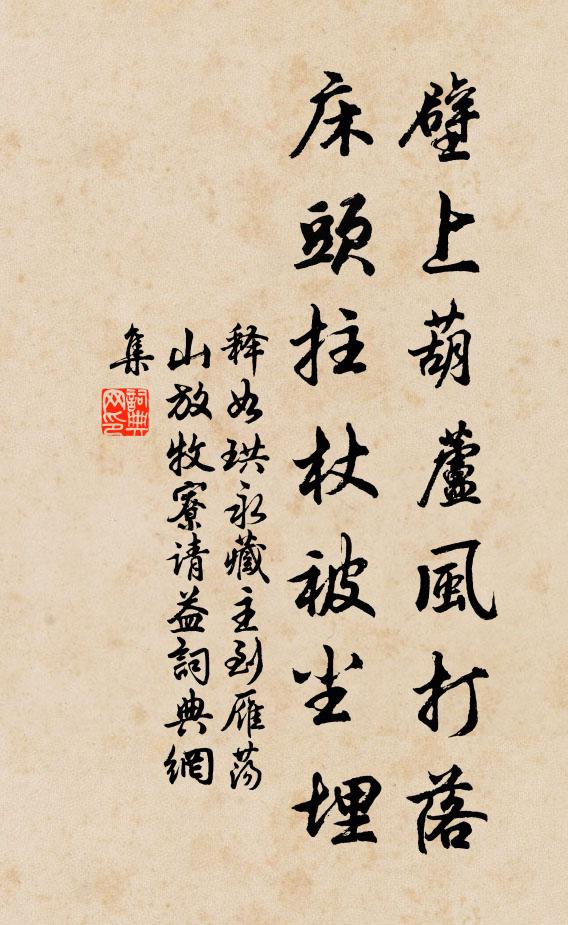 壁上葫蘆風打落
床頭拄杖被尘埋
释如珙永藏主到雁荡
山放牧寮请益詞典網
集
詞典
网印